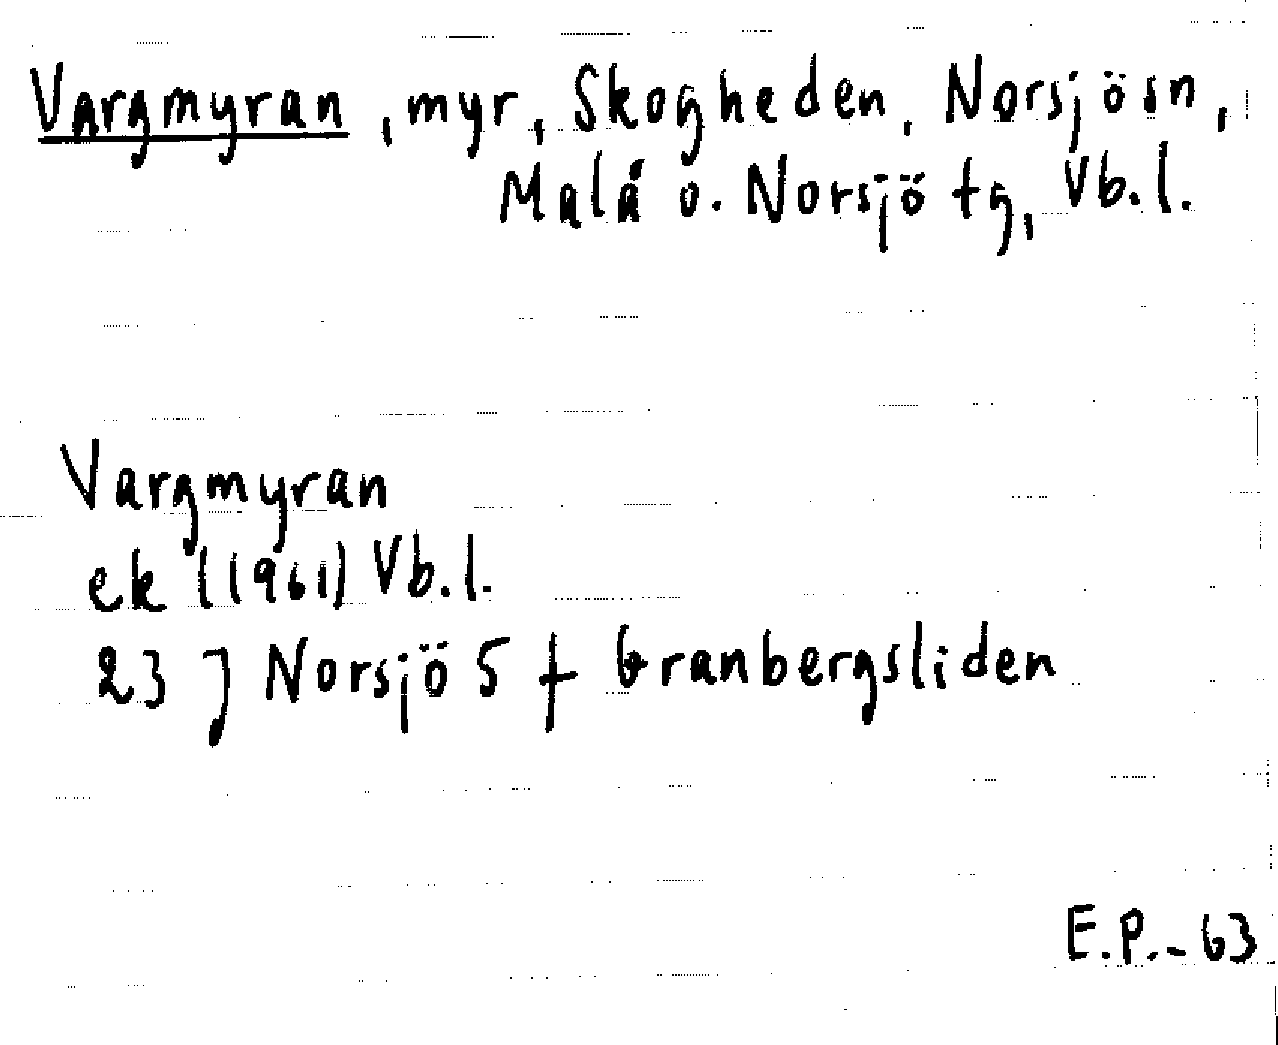 Vargmyran, myr, Skogheden, Norsjösn,
Malå o. Norsjö tg, Vb.l.
Vargmyran
ek (1961) Vb.l.
23 J Norsjö S f Granbergsliden
E.P.-63